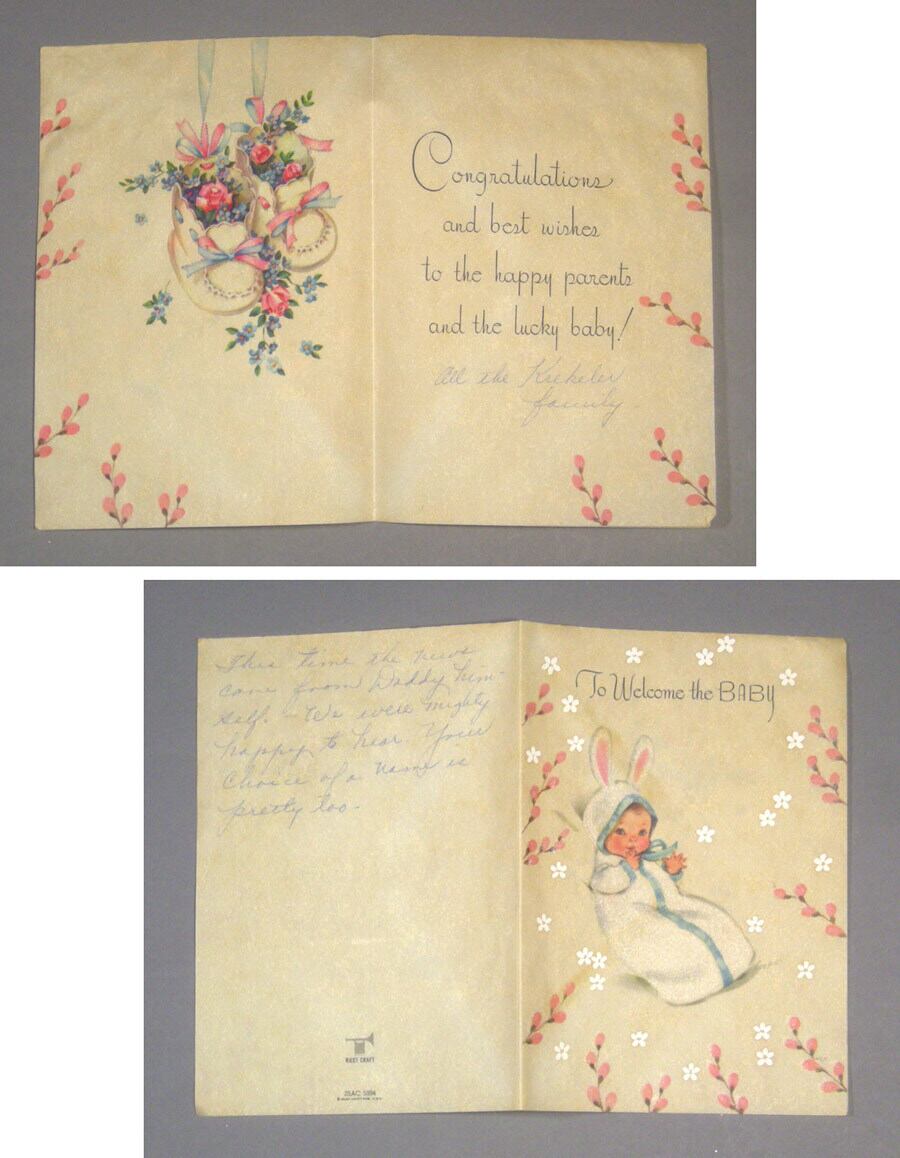 Congratulations
and best wishes
to the happy parents
and the lucky baby!
All the
family
This time the news
came from Daddy him-
self. - We were mighty
happy to hear. Your
choice of a name is
pretty too.
To Welcome the BABY
RUST CRAFT